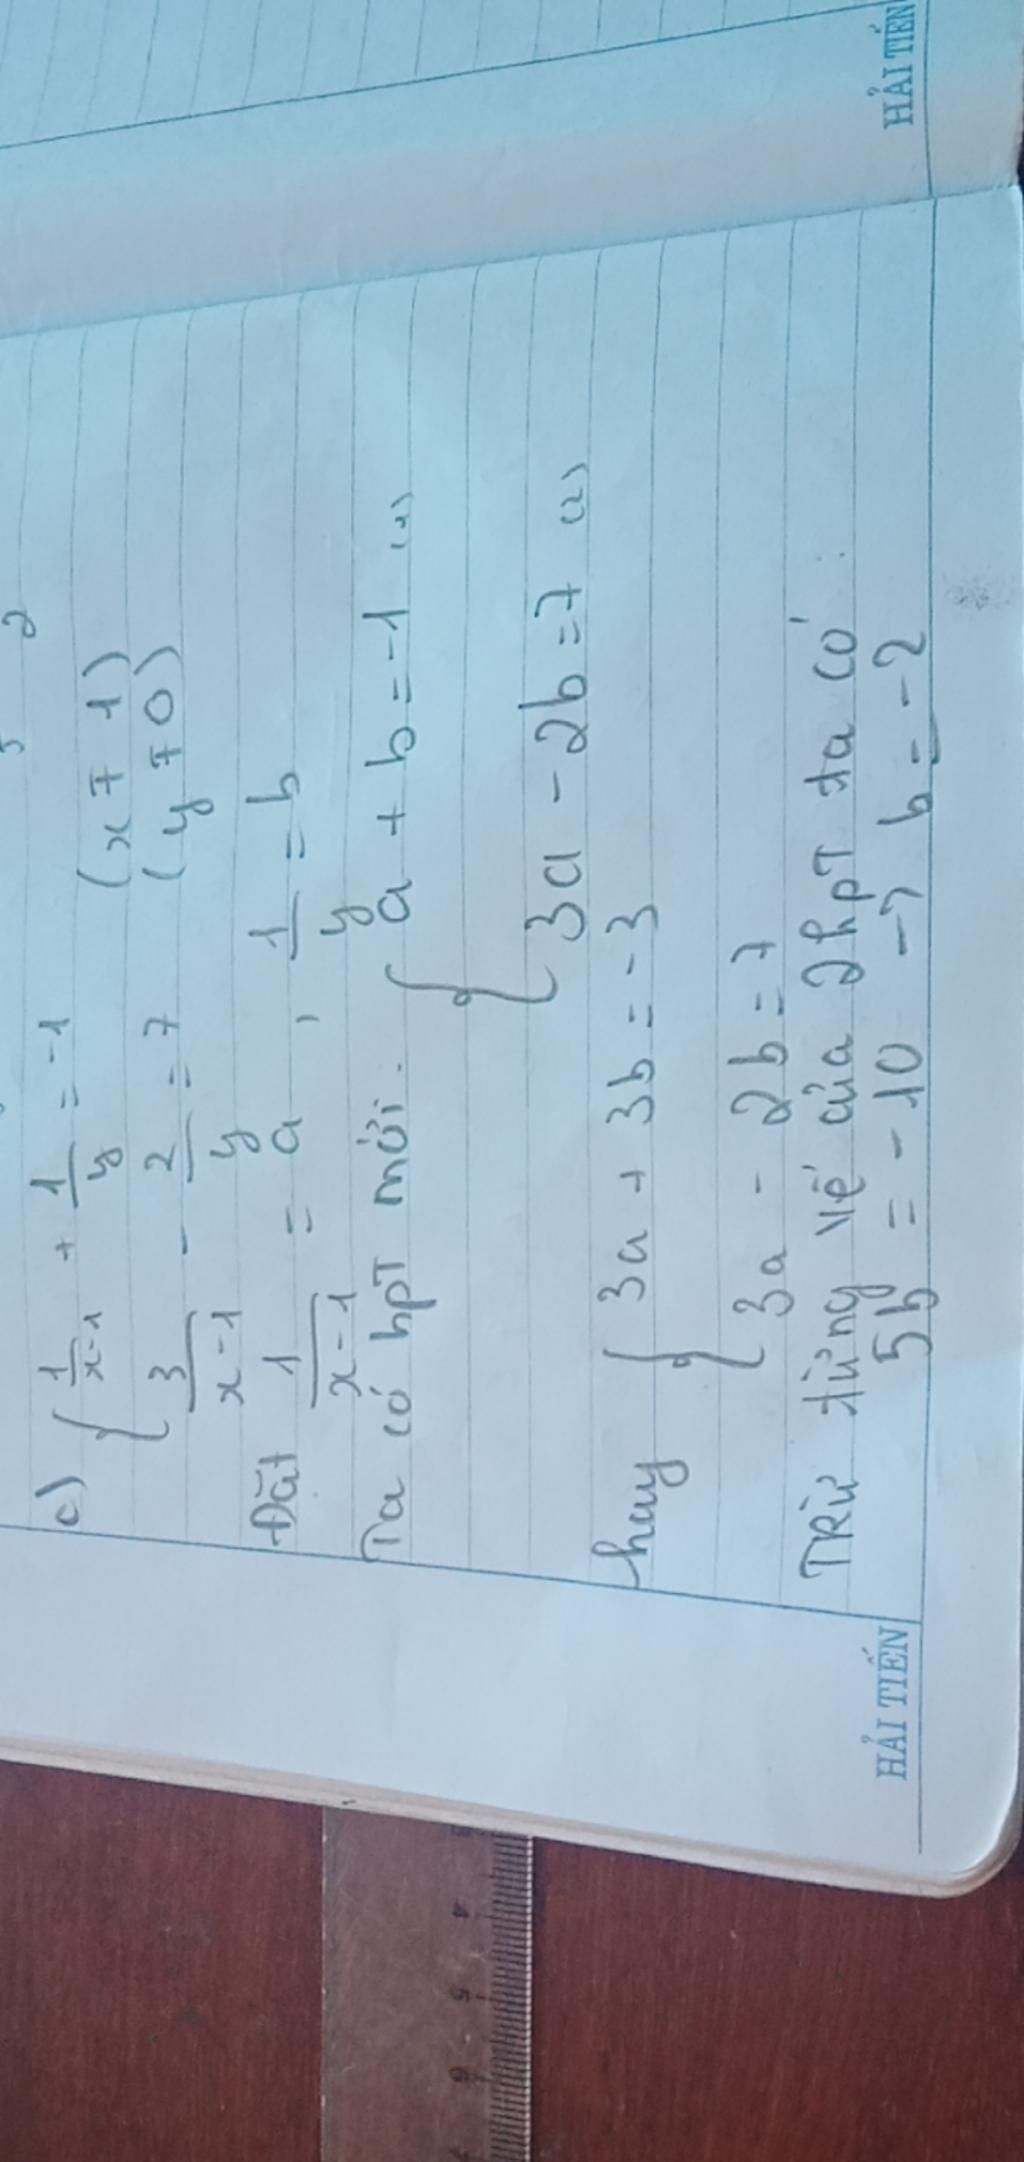 c) { 1/x-1 + 1/y = -1 (x ≠ 1)
3/x-1 - 2/y = 7 (y ≠ 0)
Đặt 1/x-1 = a, 1/y = b
Ta có hpT mới: { a + b = -1 (1)
3a - 2b = 7 (2)
hay { 3a + 3b = -3
3a - 2b = 7
TRừ từng vế của 2hpT ta có:
5b = -10 -> b = -2
HẢI TIẾN
HẢI TIẾN
3 4 5 6 7